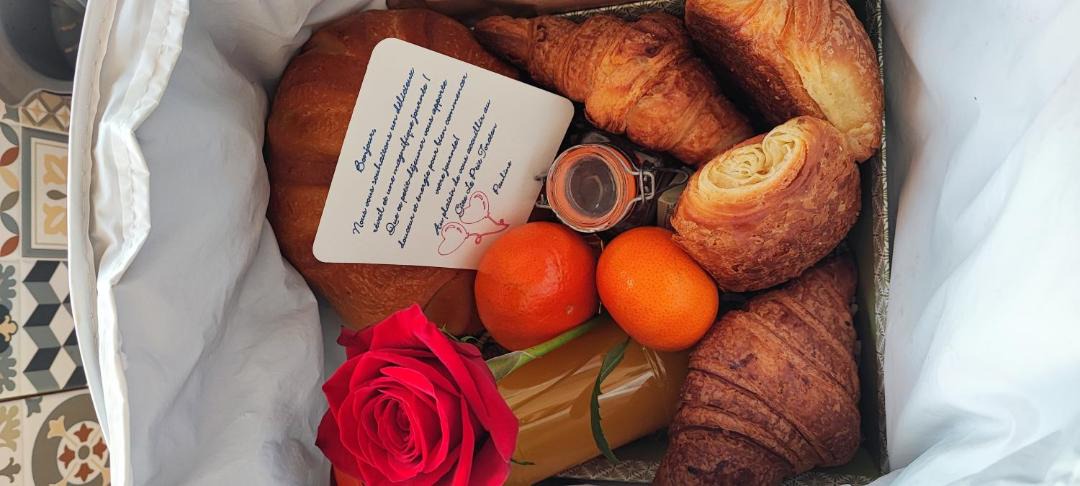 Bonjour,
Nous vous souhaitons un délicieux
réveil et une magnifique journée !
Que ce petit-déjeuner vous apporte
douceur et énergie pour bien commencer
votre journée !
Au plaisir de vous accueillir au
Pauline